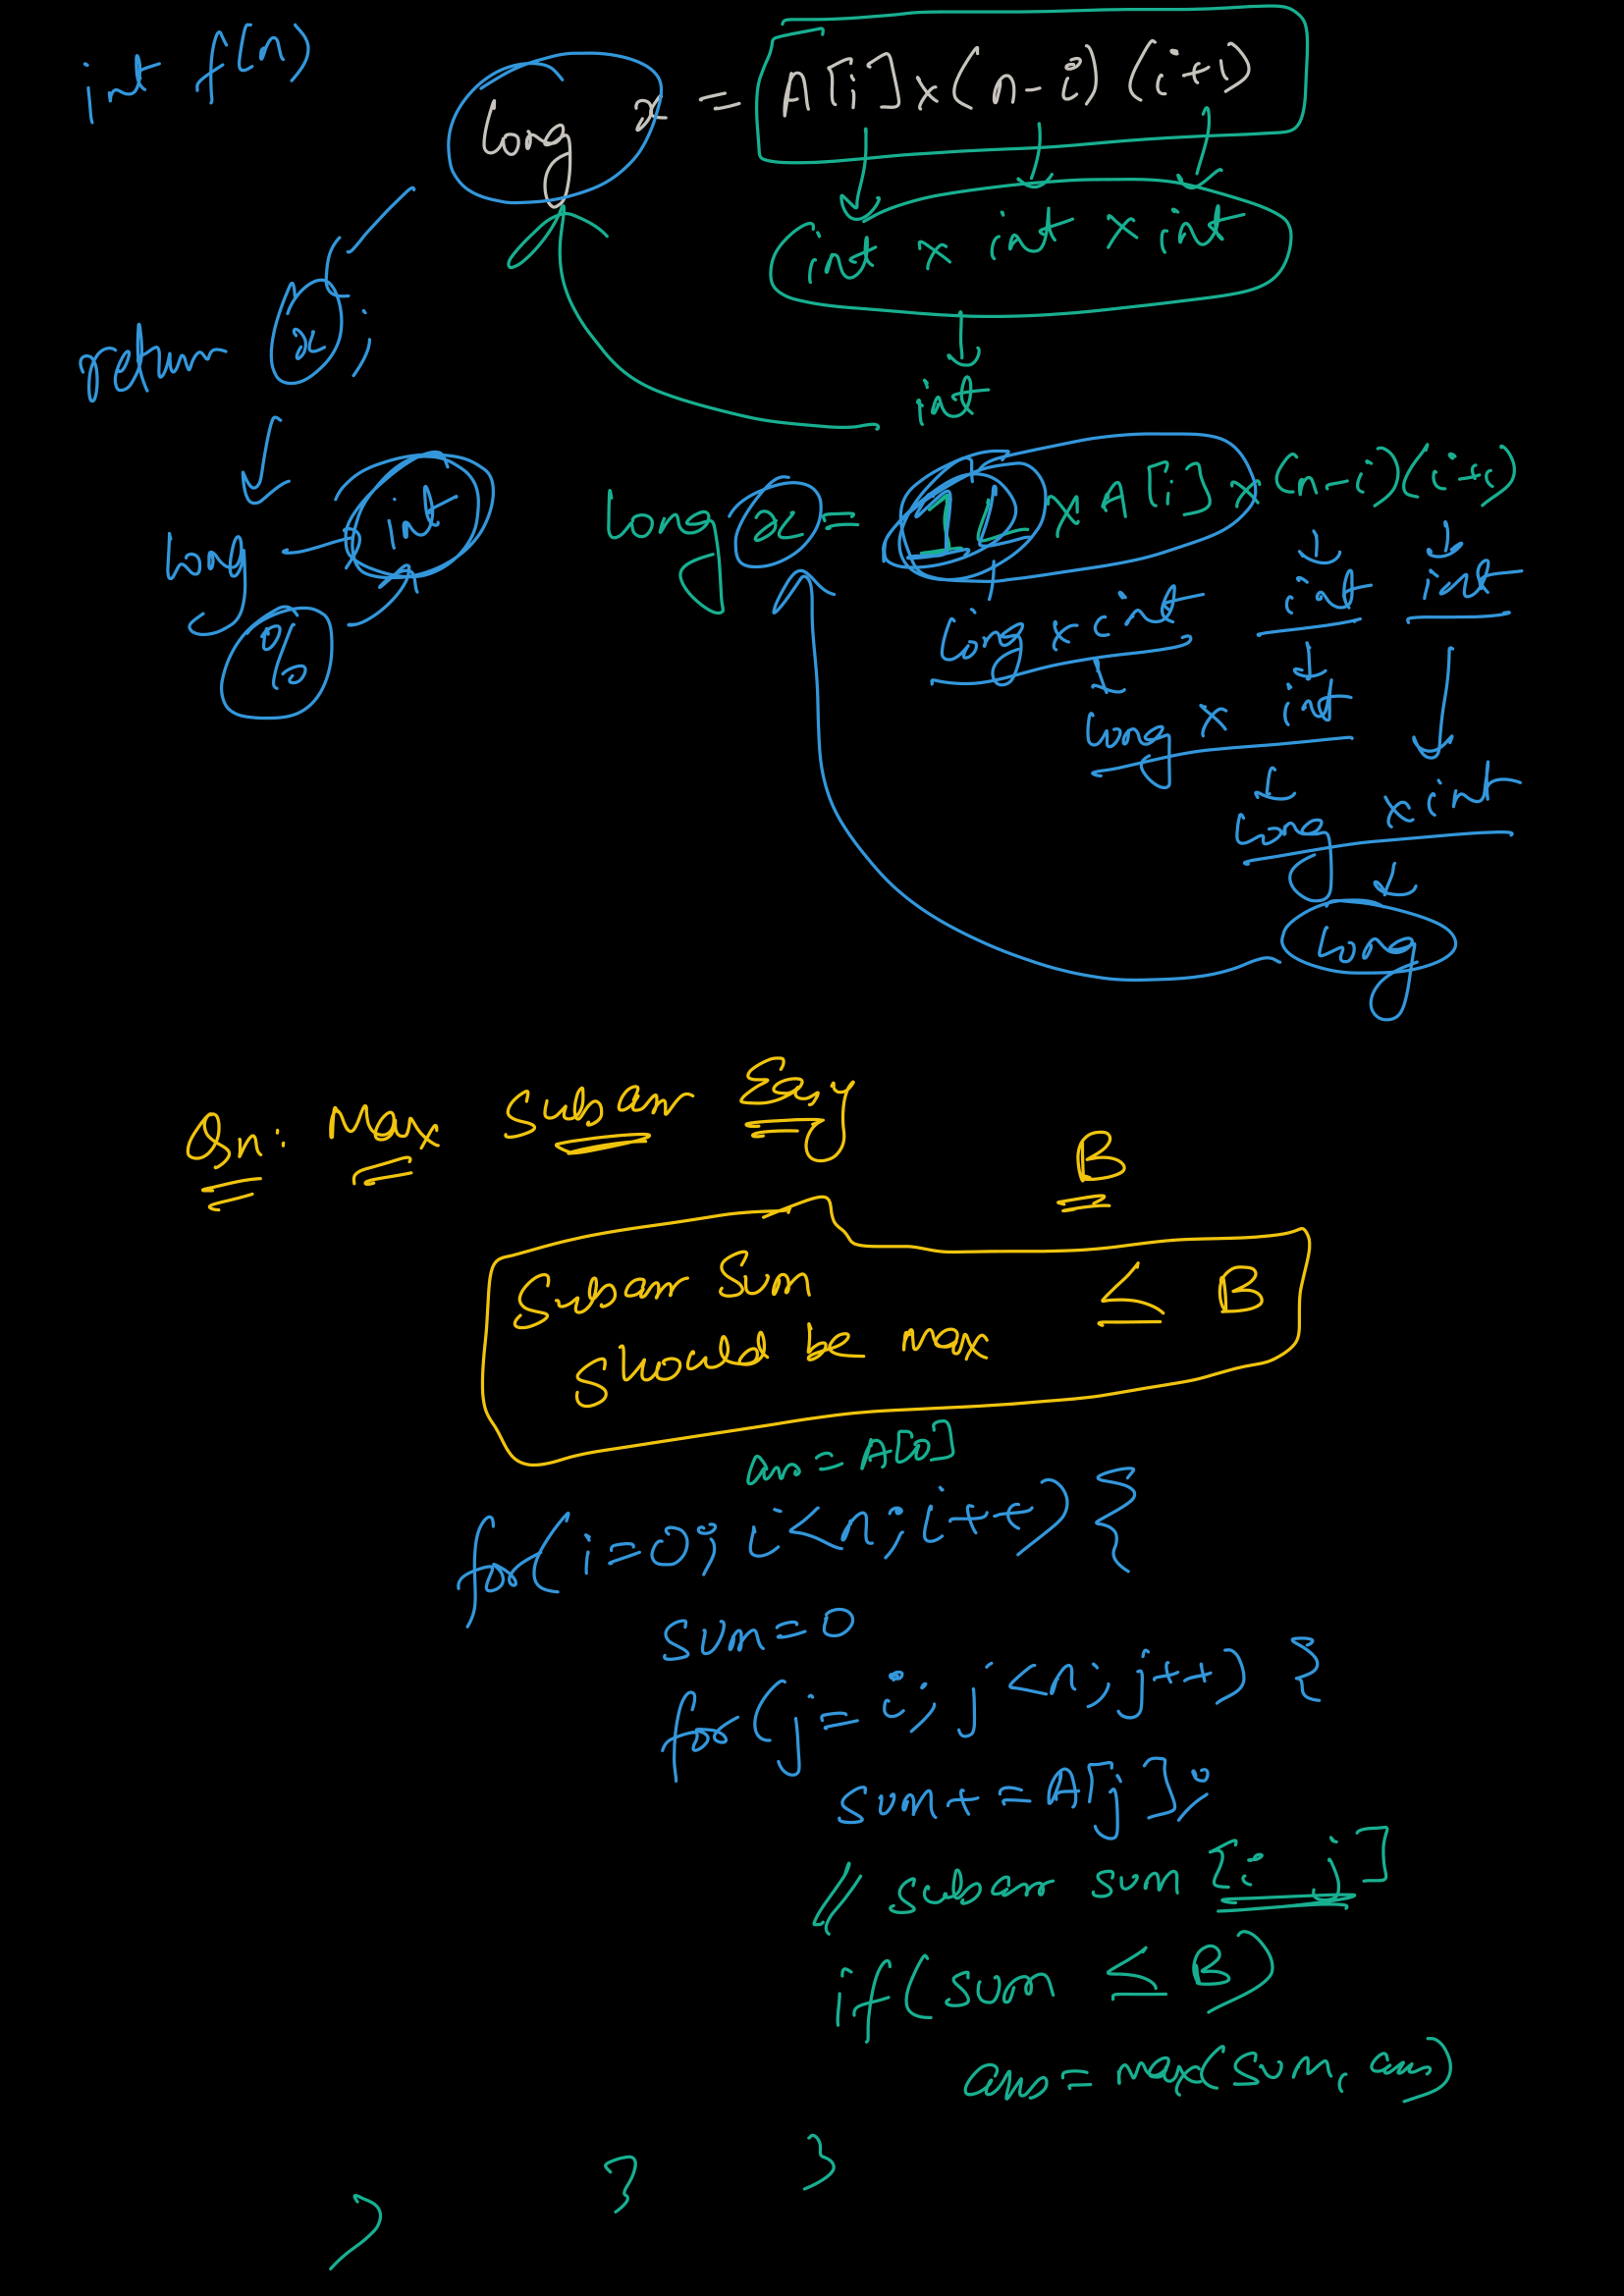 int f(n)
long x = A[i]x(n-i)(i+1)
int x int x int
return x;
int
long x = 1L x A[i] x (n-i)(i+1)
long → int
%
long x int
int int
long x int
long x int
long
Qn: Max Subarr Easy
B
Subarr Sum ≤ B
should be max
ans = A[0]
for(i=0; i<n; i++) {
sum=0
for(j=i; j<n; j++) {
sum+=A[j];
// subarr sum [i j]
if(sum ≤ B)
ans=max(sum, ans)
}
}
}